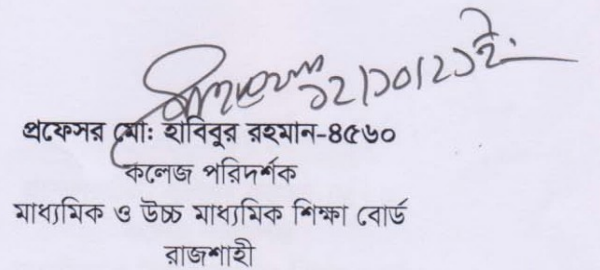 ১২/১০/২১ইং
প্রফেসর মোঃ হাবিবুর রহমান-৪৫৬০
কলেজ পরিদর্শক
মাধ্যমিক ও উচ্চ মাধ্যমিক শিক্ষা বোর্ড
রাজশাহী